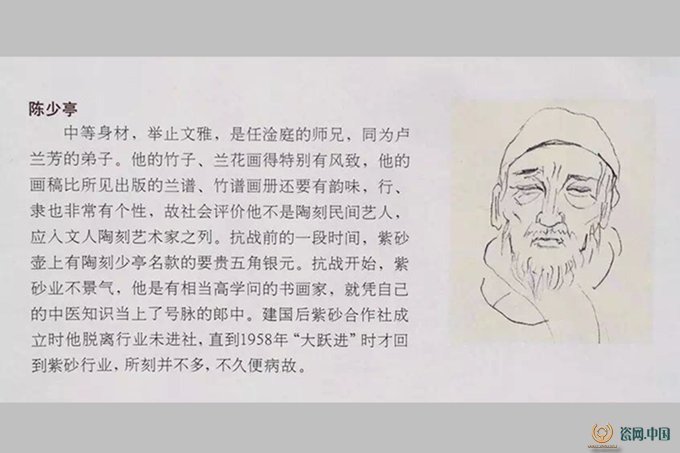 陈少亭
中等身材，举止文雅，是任淦庭的师兄，同为卢
兰芳的弟子。他的竹子、兰花画得特别有风致，他的
画稿比所见出版的兰谱、竹谱画册还要有韵味，行、
隶也非常有个性，故社会评价他不是陶刻民间艺人，
应入文人陶刻艺术家之列。抗战前的一段时间，紫砂
壶上有陶刻少亭名款的要贵五角银元。抗战开始，紫
砂业不景气，他是有相当高学问的书画家，就凭自己
的中医知识当上了号脉的郎中。建国后紫砂合作社成
立时他脱离行业未进社，直到1958年“大跃进”时才回
到紫砂行业，所刻并不多，不久便病故。
瓷网.中国